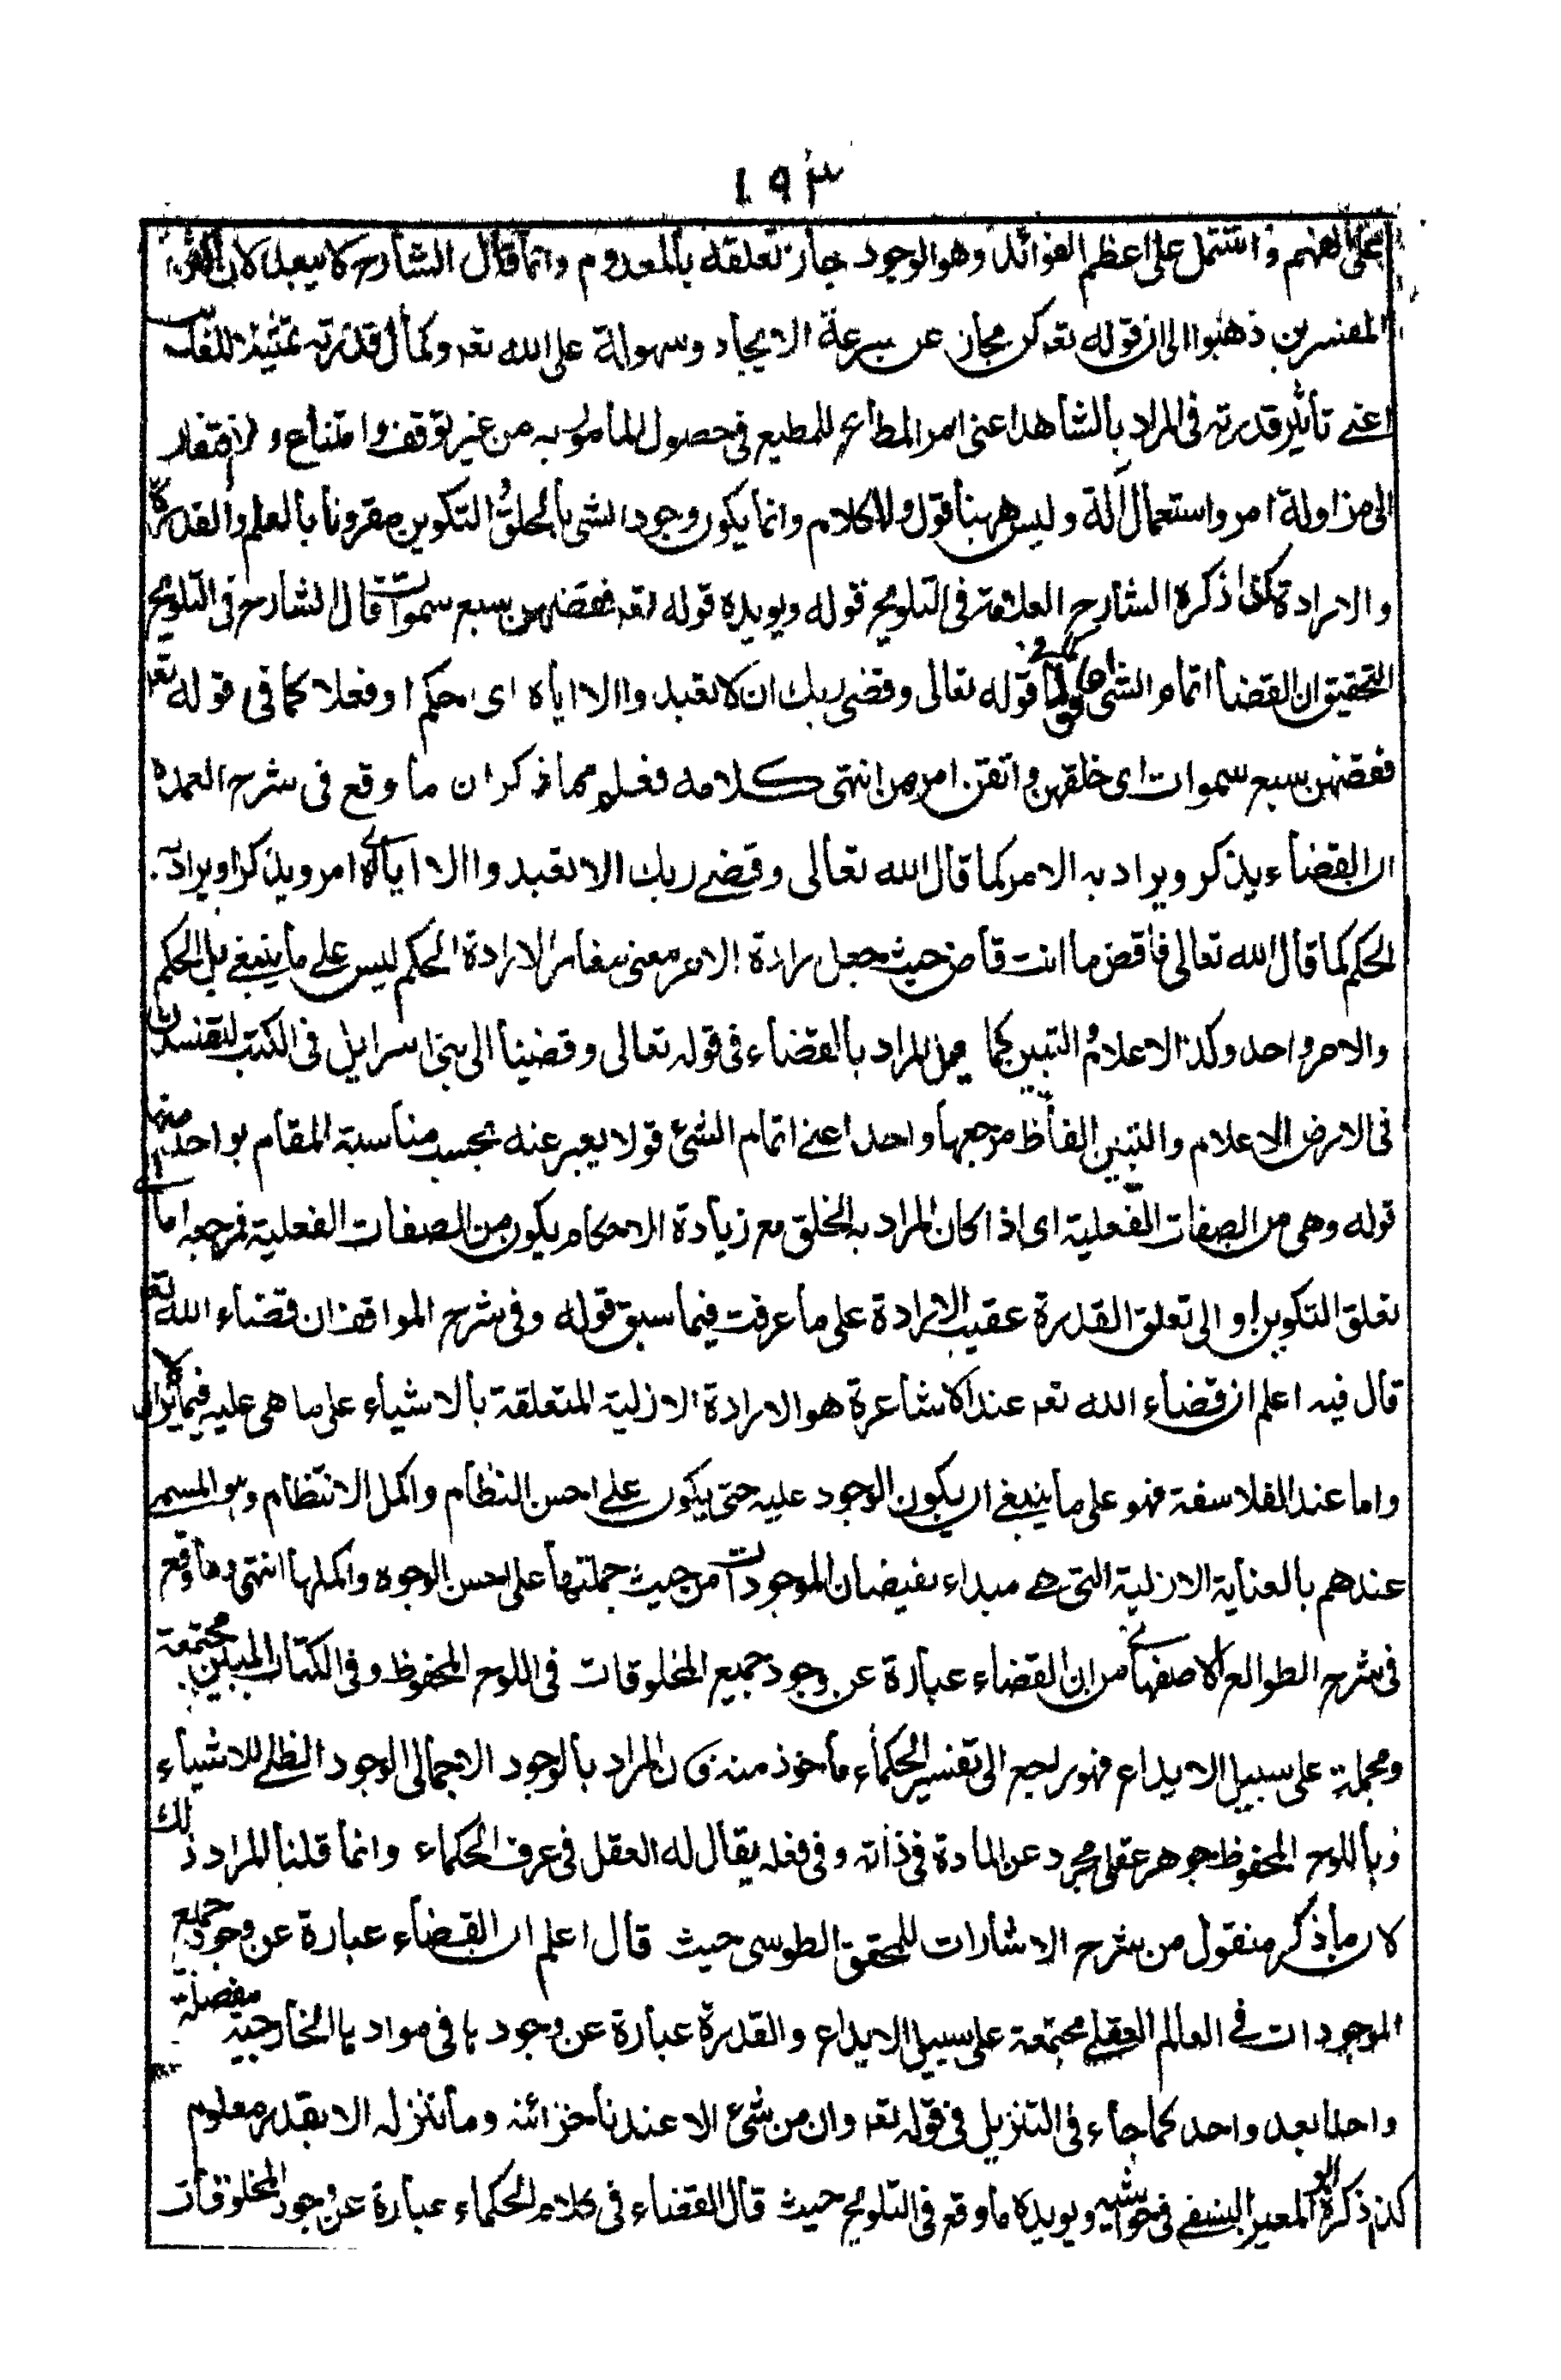 ١٩٣
على الفهم واشتمل على اعظم الفوائد وهو الوجود جاز تعلقه بالمعدوم وانما قال الشارح لا يبعد لان اكثر
المفسرين ذهبوا الى ان قوله تعه كن مجاز عن سرعة الايجاد وسهولة على الله تعه وكمال قدرته تمثيلا للغائب
اعنى تأثير قدرته فى المراد بالشاهد اعنى امر المطاع للمطيع فى حصول المأمور به من غير توقف وامتناع ولا افتقار
الى مزاولة امر واستعمال آلة وليس ههنا قول ولا كلام وانما يكون وجود الشى بالخلق والتكوين مقرونا بالعلم والقدرة
والارادة كذا ذكره الشارح العلامة فى التلويح قوله ويويده قوله تعه فقضهن سبع سموات قال الشارح فى التلويح
التحقيق ان القضا اتمام الشى اما قولا كما فى قوله تعالى وقضى ربك ان لا تعبدوا الا اياه اى احكم او فعلا كما فى قوله تعه
فقضهن سبع سموات اى خلقهن واتقن امرهن انتهى كلامه فعلم مما ذكر ان ما وقع فى شرح العمدة
ان القضاء يذكر ويراد به الامر كما قال الله تعالى وقضى ربك الا تعبدوا الا اياه اى امر ويذكر او يراد به
الحكم كما قال الله تعالى فاقض ما انت قاض حيث جعل ارادة الامر معنى مغاير الارادة الحكم ليس على ما ينبغى بل الحكم
والامر واحد وكذا الاعلام والتبيين كما هو المراد بالقضاء فى قوله تعالى وقضينا الى بنى اسرايل فى الكتب لتفسدن
فى الارض الاعلام والتبيين الفاظ مرجعها واحد اعنى اتمام الشئ قولا يعبر عنه بحسب مناسبة المقام بواحد منها
قوله وهى من الصفات الفعلية اى اذا كان المراد به الخلق مع زيادة الاحكام يكون من الصفات الفعلية فمرجعه اما الى
تعلق التكوين او الى تعلق القدرة عقيب الارادة على ما عرفت فيما سبق قوله وفى شرح المواقف ان قضاء الله تعه
قال فيه اعلم ان قضاء الله تعه عند الاشاعرة هو الارادة الازلية المتعلقة بالاشياء على ما هى عليه فيما لا يزال
واما عند الفلاسفة فهو على ما ينبغى ان يكون الوجود عليه حتى يكون على احسن النظام واكمل الانتظام وهو المسمى
عندهم بالعناية الازلية التى هى مبداء لفيضان الموجودات من حيث جملتها على احسن الوجوه واكملها انتهى وما وقع
فى شرح الطوالع للاصفهانى من ان القضاء عبارة عن وجود جميع المخلوقات فى اللوح المحفوظ وفى الكتاب المبين مجتمعة
ومجملة على سبيل الابداع فهو راجع الى تفسير الحكماء مأخوذ منه فان المراد بالوجود الاجمالى الوجود الظلى للاشياء
وباللوح المحفوظ جوهر عقلى مجرد عن المادة فى ذاته وفى فعله يقال له العقل فى عرف الحكماء وانما قلنا المراد ذلك
لان ما ذكر منقول من شرح الاشارات للمحقق الطوسى حيث قال اعلم ان القضاء عبارة عن وجود جميع
الموجودات فى العالم العقلى مجتمعة على سبيل الابداع والقدرة عبارة عن وجودها فى موادها الخارجية مفصلة
واحدا بعد واحد كما جاء فى التنزيل فى قوله تعه وان من شئ الا عندنا خزائنه وما ننزله الا بقدر معلوم
كذا ذكره ابو المعين النسفى فى حواشيه ويويده ما وقع فى التلويح حيث قال القضاء فى كلام الحكماء عبارة عن وجود المخلوقات